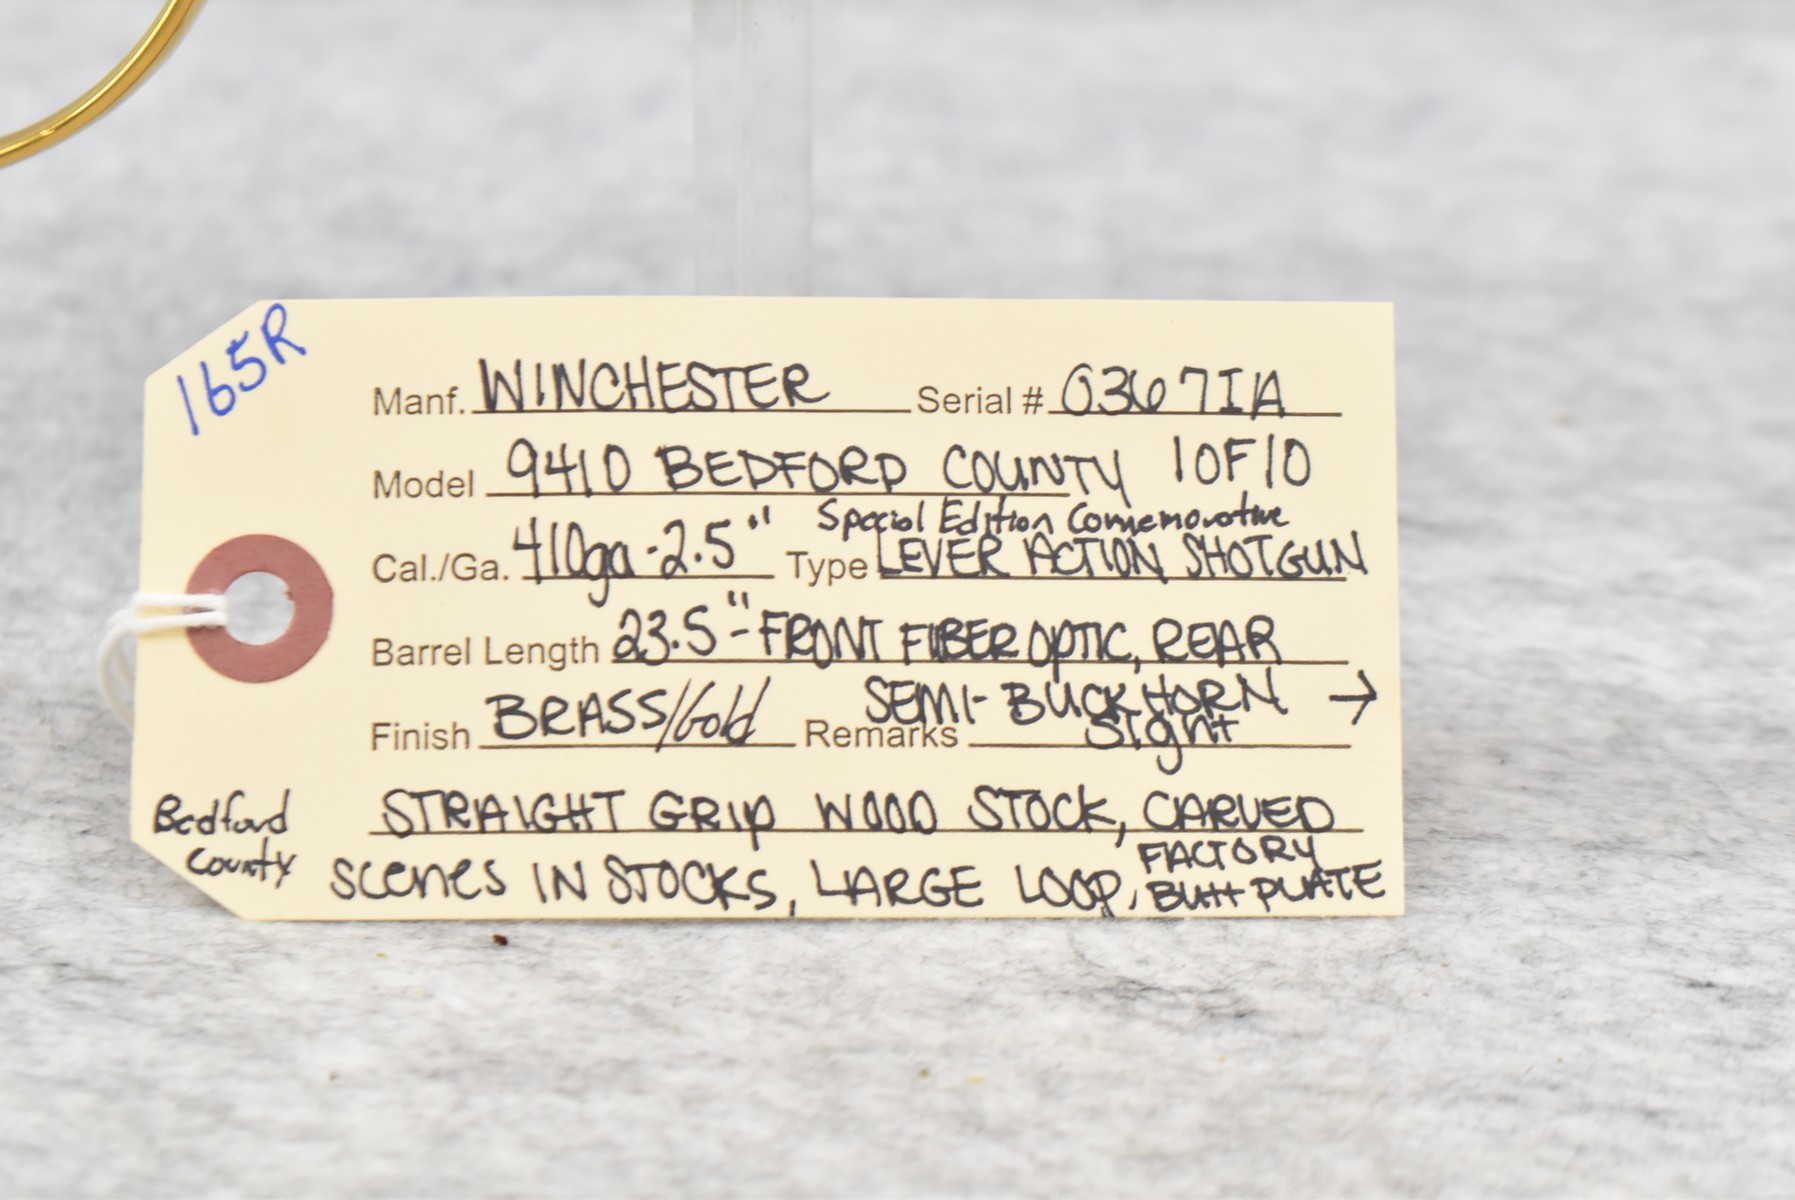 165R
Manf. WINCHESTER Serial # 0367IA
Model 9410 BEDFORD COUNTY 1OF10
Special Edition Comemorative
Cal./Ga. 410ga - 2.5" Type LEVER ACTION SHOTGUN
Barrel Length 23.5" - FRONT FIBER OPTIC, REAR
SEMI-BUCKHORN →
Finish BRASS/Gold Remarks Sight
Bedford County
STRAIGHT GRIP WOOD STOCK, CARVED
SCENES IN STOCKS, LARGE LOOP, FACTORY BUTT PLATE